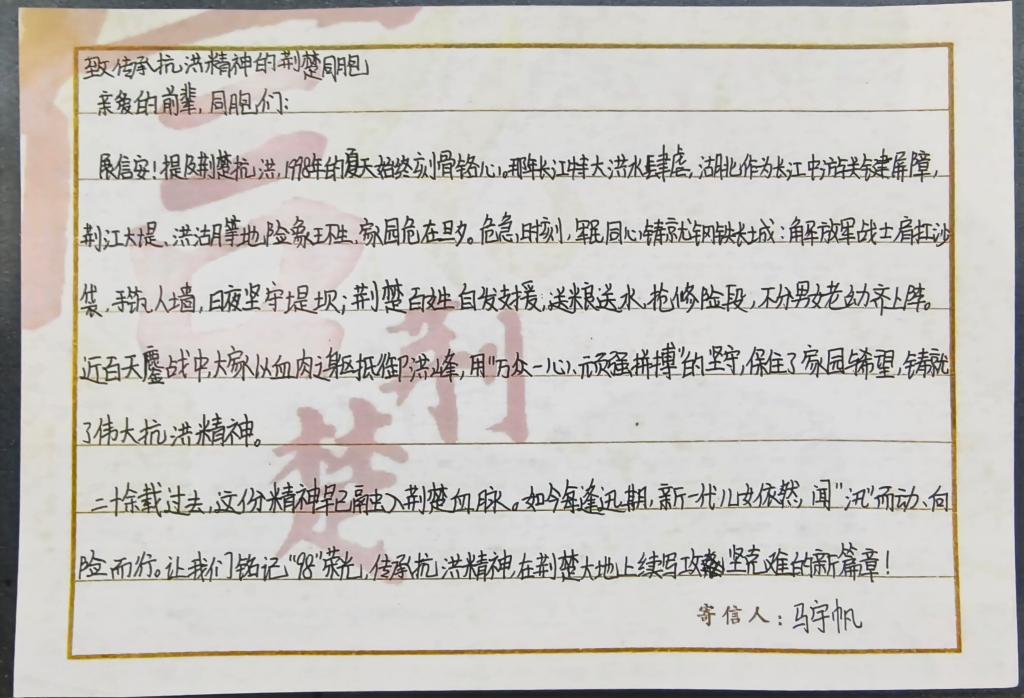 致传承抗洪精神的荆楚同胞
亲爱的前辈,同胞们:
展信安!提及荆楚抗洪,1998年的夏天始终刻骨铭心。那年长江特大洪水肆虐,湖北作为长江中游关键屏障,
荆江大堤、洪湖等地险象环生,家园危在旦夕。危急时刻,军民同心铸就钢铁长城:解放军战士肩扛沙
袋、手筑人墙,日夜坚守堤坝;荆楚百姓自发支援,送粮送水,抢修险段,不分男女老幼齐上阵。
近百天鏖战中大家以血肉之躯抵御洪峰,用"万众一心、顽强拼搏"的坚守,保住了家园与希望,铸就
了伟大抗洪精神。
二十余载过去,这份精神早已融入荆楚血脉。如今每逢汛期,新一代儿女依然,闻"汛"而动、向
险而行。让我们铭记"98"荣光,传承抗洪精神,在荆楚大地上续写攻坚克难的新篇章!
寄信人:马宇帆
信
荆
楚